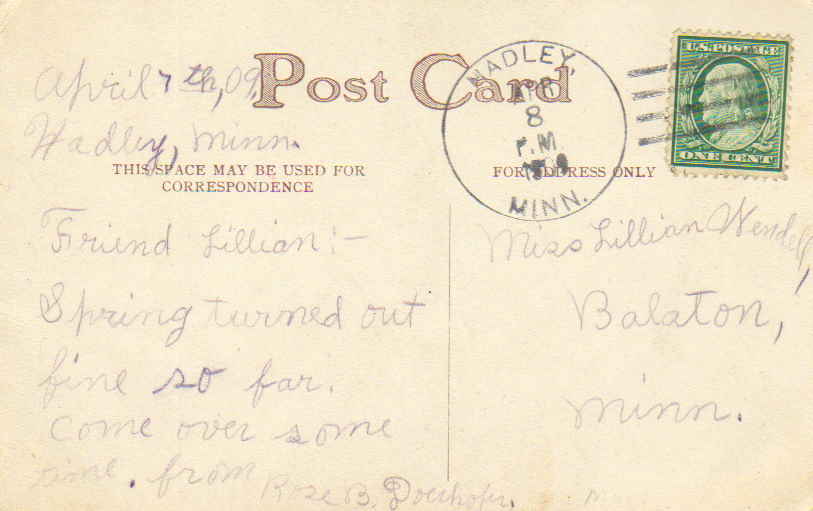 Post Card
April 7th, 09.
Hadley, Minn.
THIS SPACE MAY BE USED FOR
CORRESPONDENCE
Friend Lillian:-
Spring turned out
fine so far.
Come over some
time. from
Rose B.
HADLEY,
APR
8
P.M.
1909
MINN.
U.S. POSTAGE
ONE CENT
FOR ADDRESS ONLY
Miss Lillian Wendell,
Balaton,
Minn.